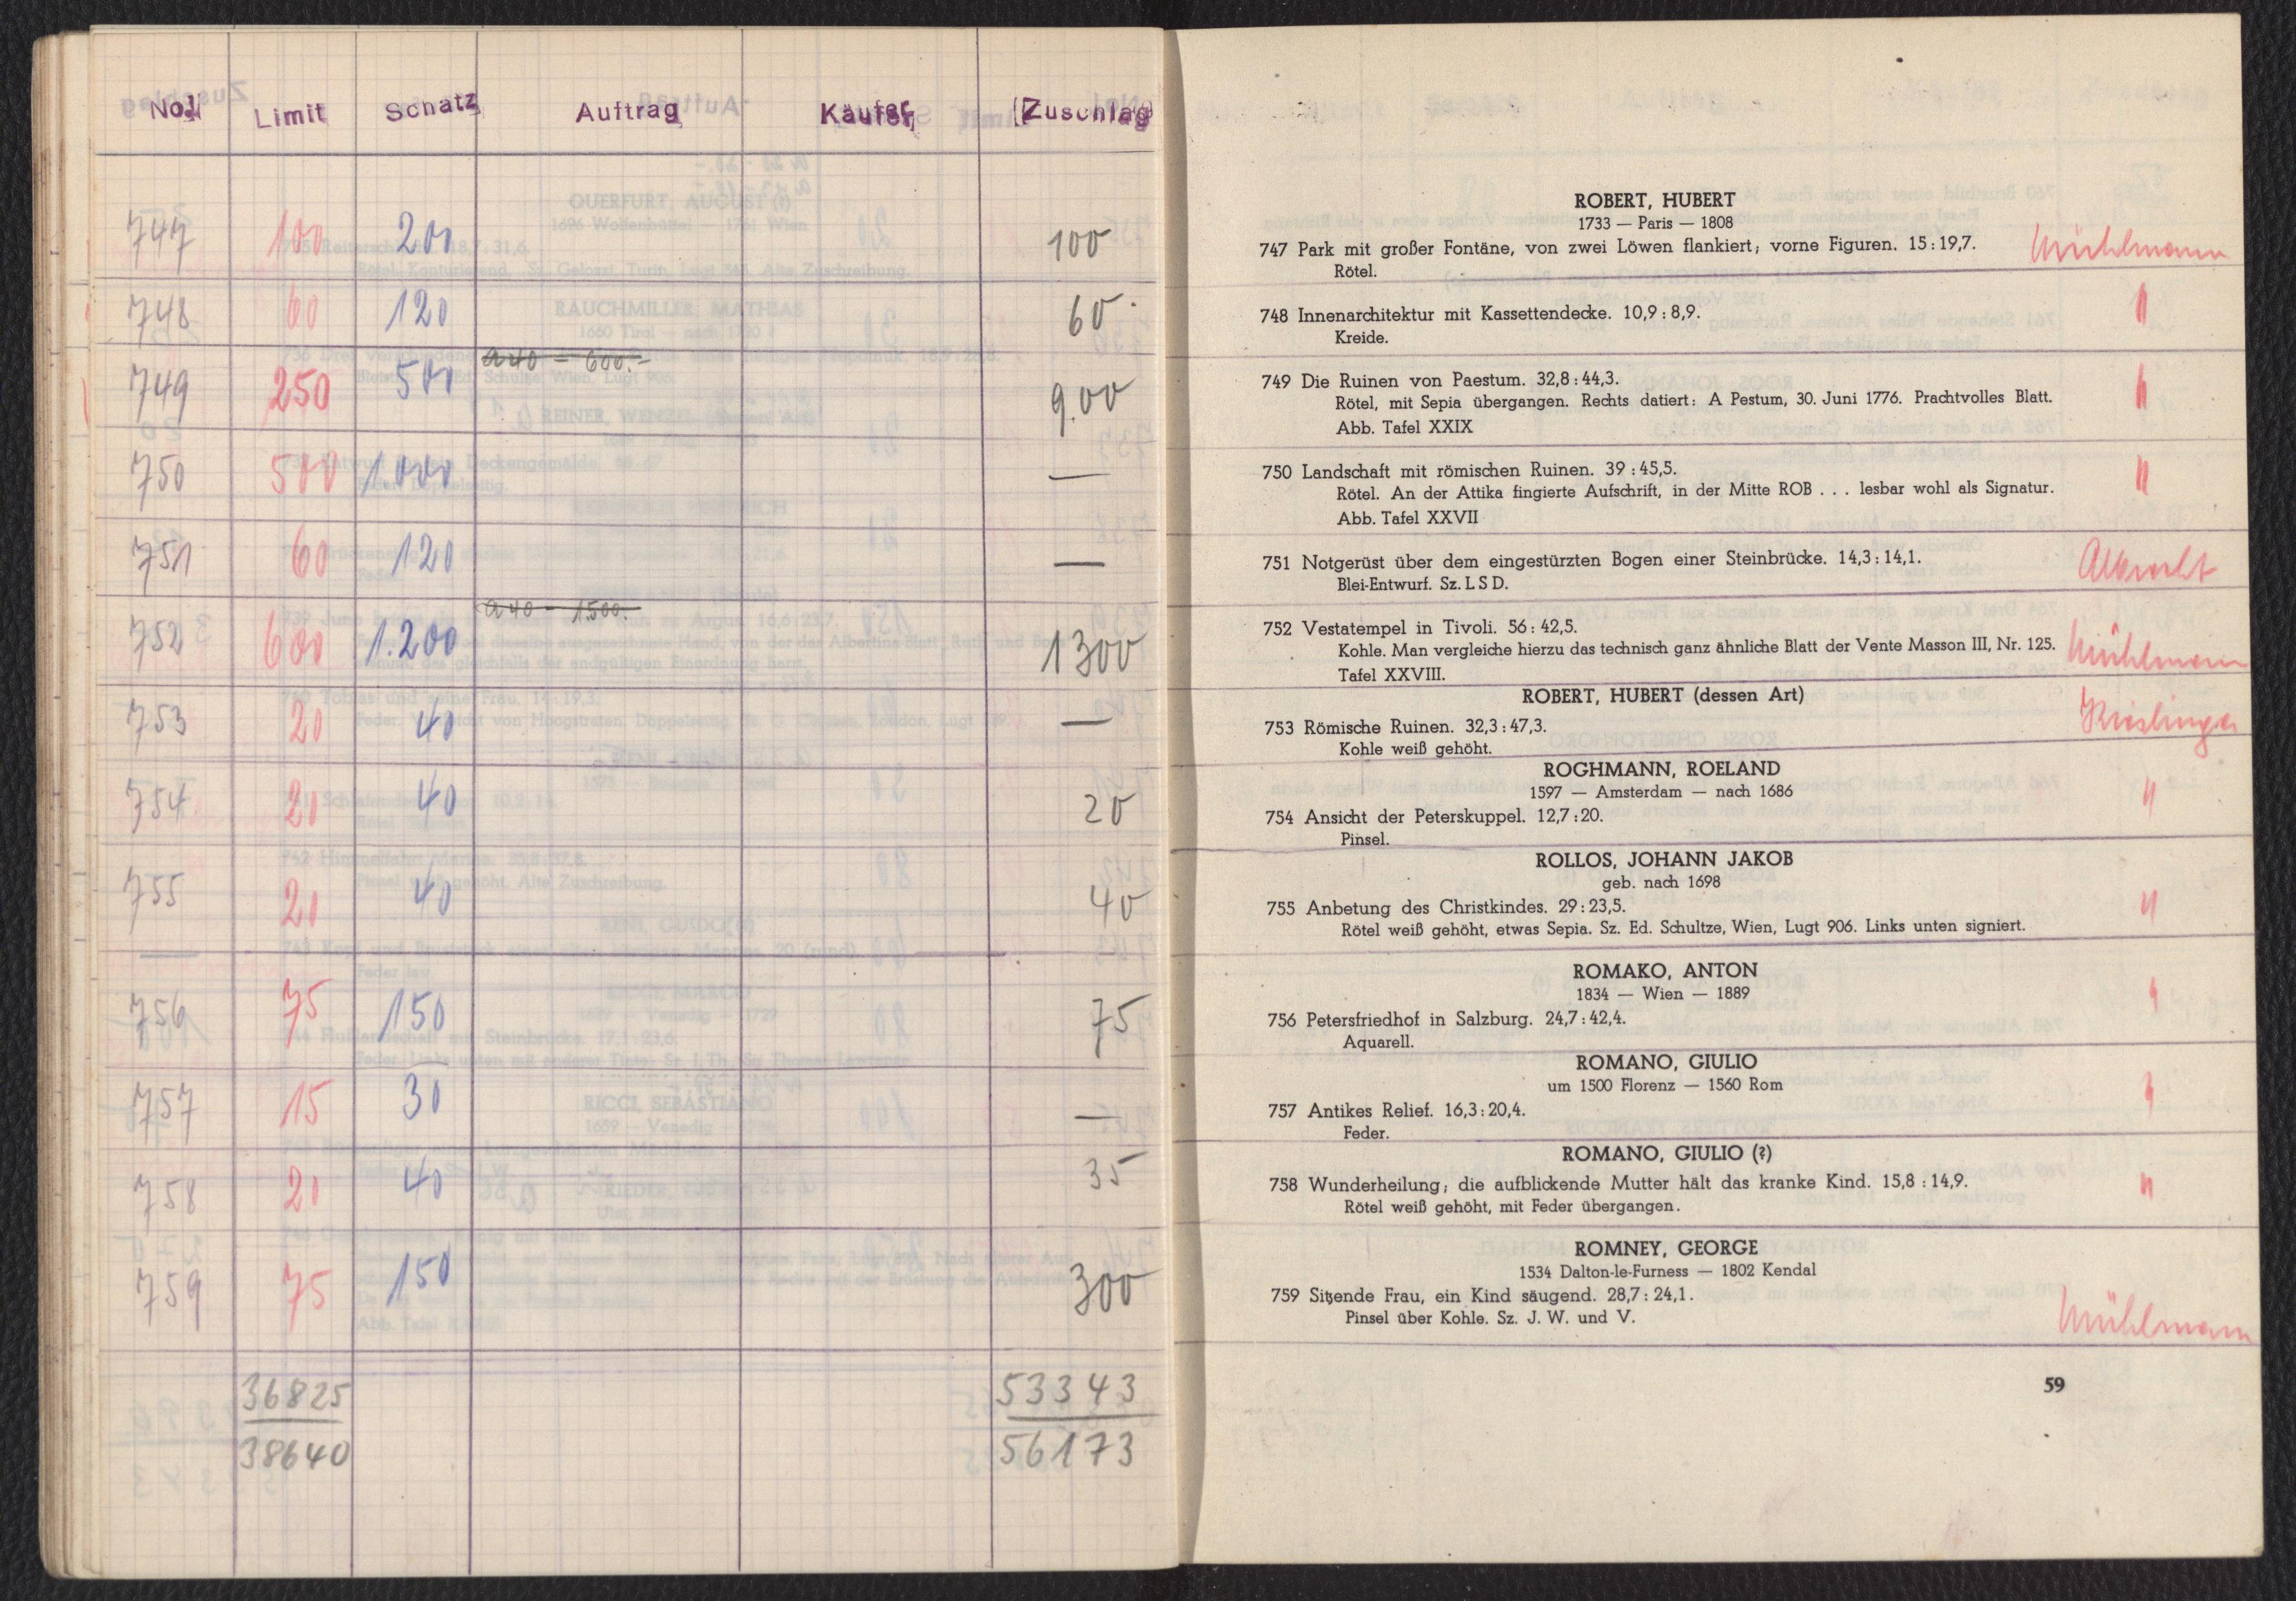 No. Limit Schatz Auftrag Käufer Zuschlag
747 100 200 100
748 60 120 60
a 40 - 600.-
749 250 500 900
750 500 1000 —
751 60 120 —
a 40 - 1500.
752 600 1.200 1300
753 20 40 —
754 20 40 20
755 20 40 40
—
756 75 150 75
757 15 30 —
758 20 40 35
759 75 150 300
36825 53343
38640 56173
ROBERT, HUBERT
1733 — Paris — 1808
747 Park mit großer Fontäne, von zwei Löwen flankiert; vorne Figuren. 15 : 19,7. Mühlmann
Rötel.
748 Innenarchitektur mit Kassettendecke. 10,9 : 8,9. "
Kreide.
749 Die Ruinen von Paestum. 32,8 : 44,3. "
Rötel, mit Sepia übergangen. Rechts datiert: A Pestum, 30. Juni 1776. Prachtvolles Blatt.
Abb. Tafel XXIX
750 Landschaft mit römischen Ruinen. 39 : 45,5. "
Rötel. An der Attika fingierte Aufschrift, in der Mitte ROB . . . lesbar wohl als Signatur.
Abb. Tafel XXVII
751 Notgerüst über dem eingestürzten Bogen einer Steinbrücke. 14,3 : 14,1. Albrecht
Blei-Entwurf. Sz. L S D.
752 Vestatempel in Tivoli. 56 : 42,5.
Kohle. Man vergleiche hierzu das technisch ganz ähnliche Blatt der Vente Masson III, Nr. 125. Mühlmann
Tafel XXVIII.
ROBERT, HUBERT (dessen Art)
753 Römische Ruinen. 32,3 : 47,3. Kieslinger
Kohle weiß gehöht.
ROGHMANN, ROELAND
1597 — Amsterdam — nach 1686
754 Ansicht der Peterskuppel. 12,7 : 20. "
Pinsel.
ROLLOS, JOHANN JAKOB
geb. nach 1698
755 Anbetung des Christkindes. 29 : 23,5. "
Rötel weiß gehöht, etwas Sepia. Sz. Ed. Schultze, Wien, Lugt 906. Links unten signiert.
ROMAKO, ANTON
1834 — Wien — 1889
756 Petersfriedhof in Salzburg. 24,7 : 42,4. "
Aquarell.
ROMANO, GIULIO
um 1500 Florenz — 1560 Rom
757 Antikes Relief. 16,3 : 20,4. "
Feder.
ROMANO, GIULIO (?)
758 Wunderheilung; die aufblickende Mutter hält das kranke Kind. 15,8 : 14,9. "
Rötel weiß gehöht, mit Feder übergangen.
ROMNEY, GEORGE
1534 Dalton-le-Furness — 1802 Kendal
759 Sitzende Frau, ein Kind säugend. 28,7 : 24,1.
Pinsel über Kohle. Sz. J. W. und V. Mühlmann
59